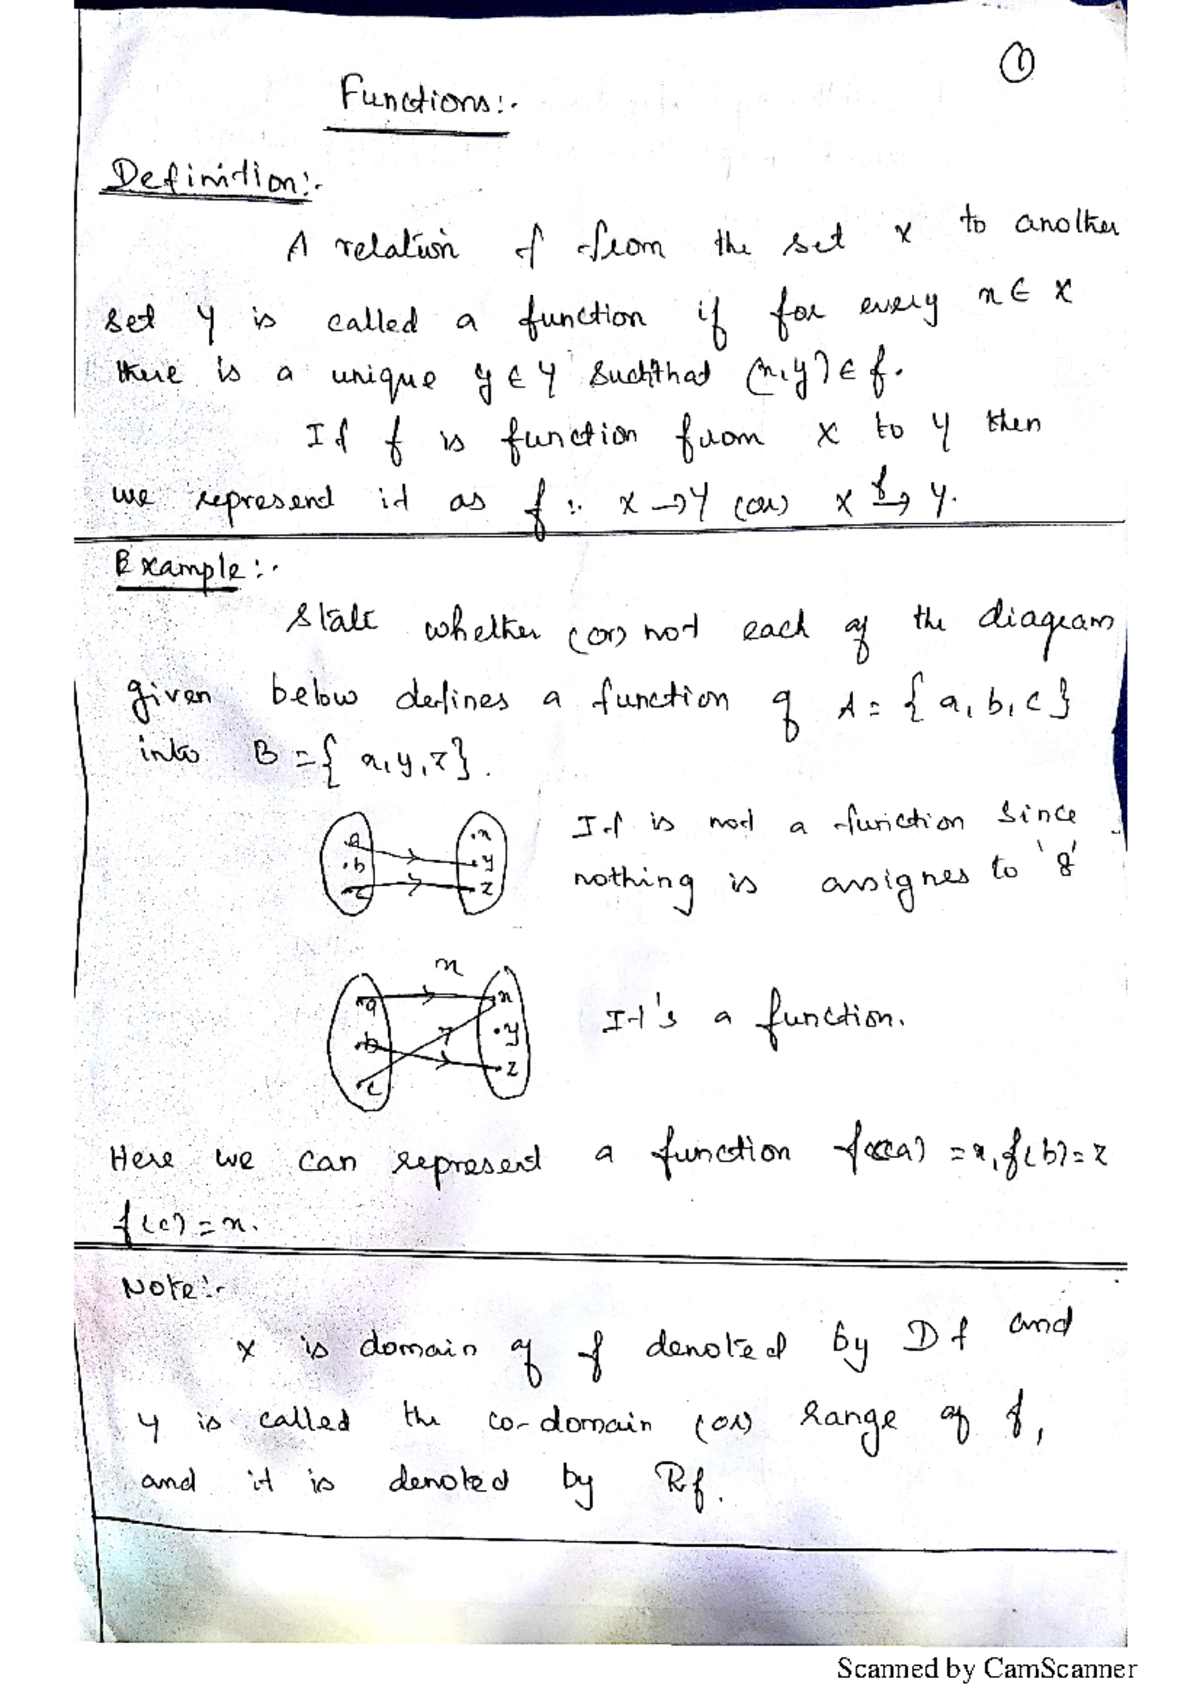 ①
Functions:-
Definition:-
A relation f from the set X to another
set Y is called a function if for every x ∈ X
there is a unique y ∈ Y such that (x, y) ∈ f.
If f is function from X to Y then
we represent it as f : X → Y (or) X →f Y.
Example:-
State whether (or) not each of the diagram
given below defines a function of A = {a, b, c}
into B = {x, y, z}.
a x
b y
c z
It is not a function since
nothing is assignes to '8'
x
a x
b y
c z
It's a function.
Here we can represent a function f(a) = x, f(b) = z
f(c) = x.
Note:-
X is domain of f denoted by Df and
Y is called the co-domain (or) range of f,
and it is denoted by Rf.
Scanned by CamScanner